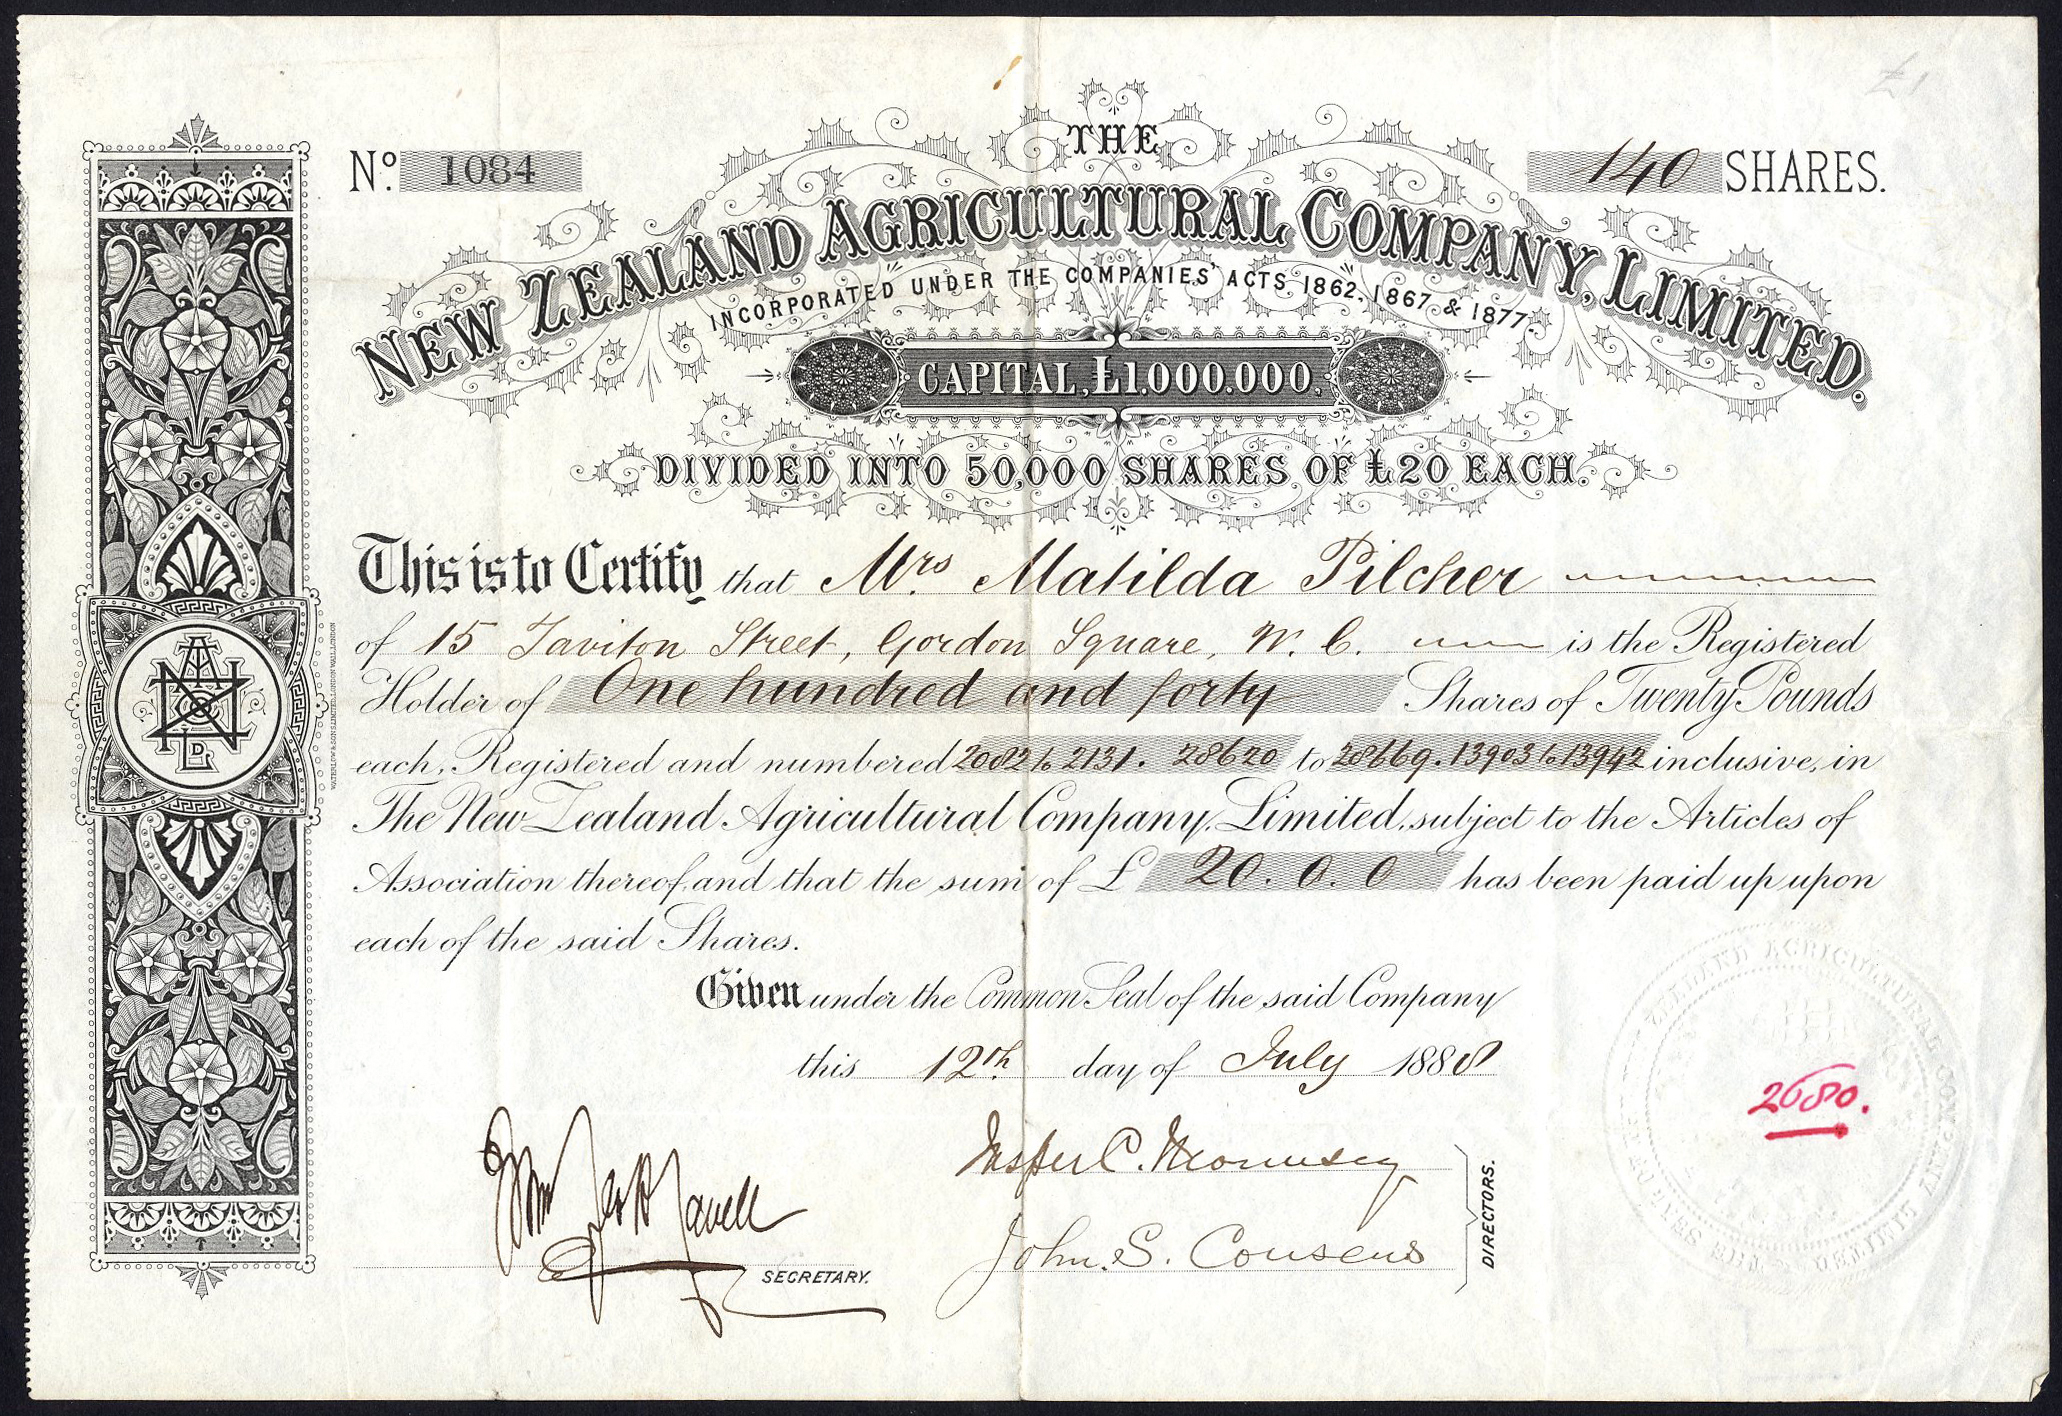 £1
THE
Nº 1084
140 SHARES.
NEW ZEALAND AGRICULTURAL COMPANY, LIMITED.
INCORPORATED UNDER THE COMPANIES' ACTS, 1862, 1867, & 1877.
CAPITAL, £1,000,000,
DIVIDED INTO 50,000 SHARES OF £20 EACH.
This is to Certify that Mrs. Matilda Pilcher
of 15 Taviton Street, Gordon Square, W. C. is the Registered
Holder of One hundred and forty Shares of Twenty Pounds
each, Registered and numbered 2082 to 2131. 28620 to 28669. 13903 to 13942 inclusive, in
The New Zealand Agricultural Company, Limited, subject to the Articles of
Association thereof, and that the sum of £ 20. 0. 0 has been paid up upon
each of the said Shares.
Given under the Common Seal of the said Company
this 12th day of July 1888
SECRETARY.
John. S. Cousens
DIRECTORS.
WATERLOW & SONS LIMITED, LONDON WALL, LONDON
THE SEAL OF THE NEW ZEALAND AGRICULTURAL COMPANY LIMITED
2680.